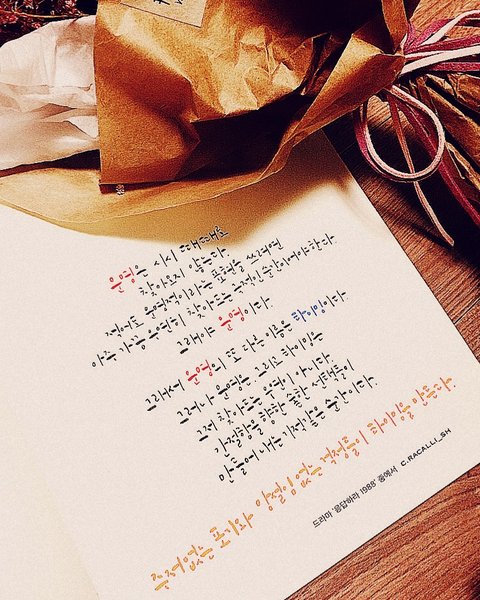 운명은 시시 때때로
찾아오지 않는다.
적어도 운명적이라는 표현을 쓰려면
아주 가끔 우연히 찾아드는 극적인 순간이어야한다.
그래야 운명이다.
그래서 운명의 또 다른 이름은 타이밍이다.
그러나 운명은 그리고 타이밍은
그저 찾아드는 우연이 아니다.
간절함을 향한 숱한 선택들이
만들어 내는 기적같은 순간이다.
주저없는 포기와 망설임 없는 결정들이 타이밍을 만든다.
드라마 '응답하라 1988' 중에서 C.RACALLI_SH